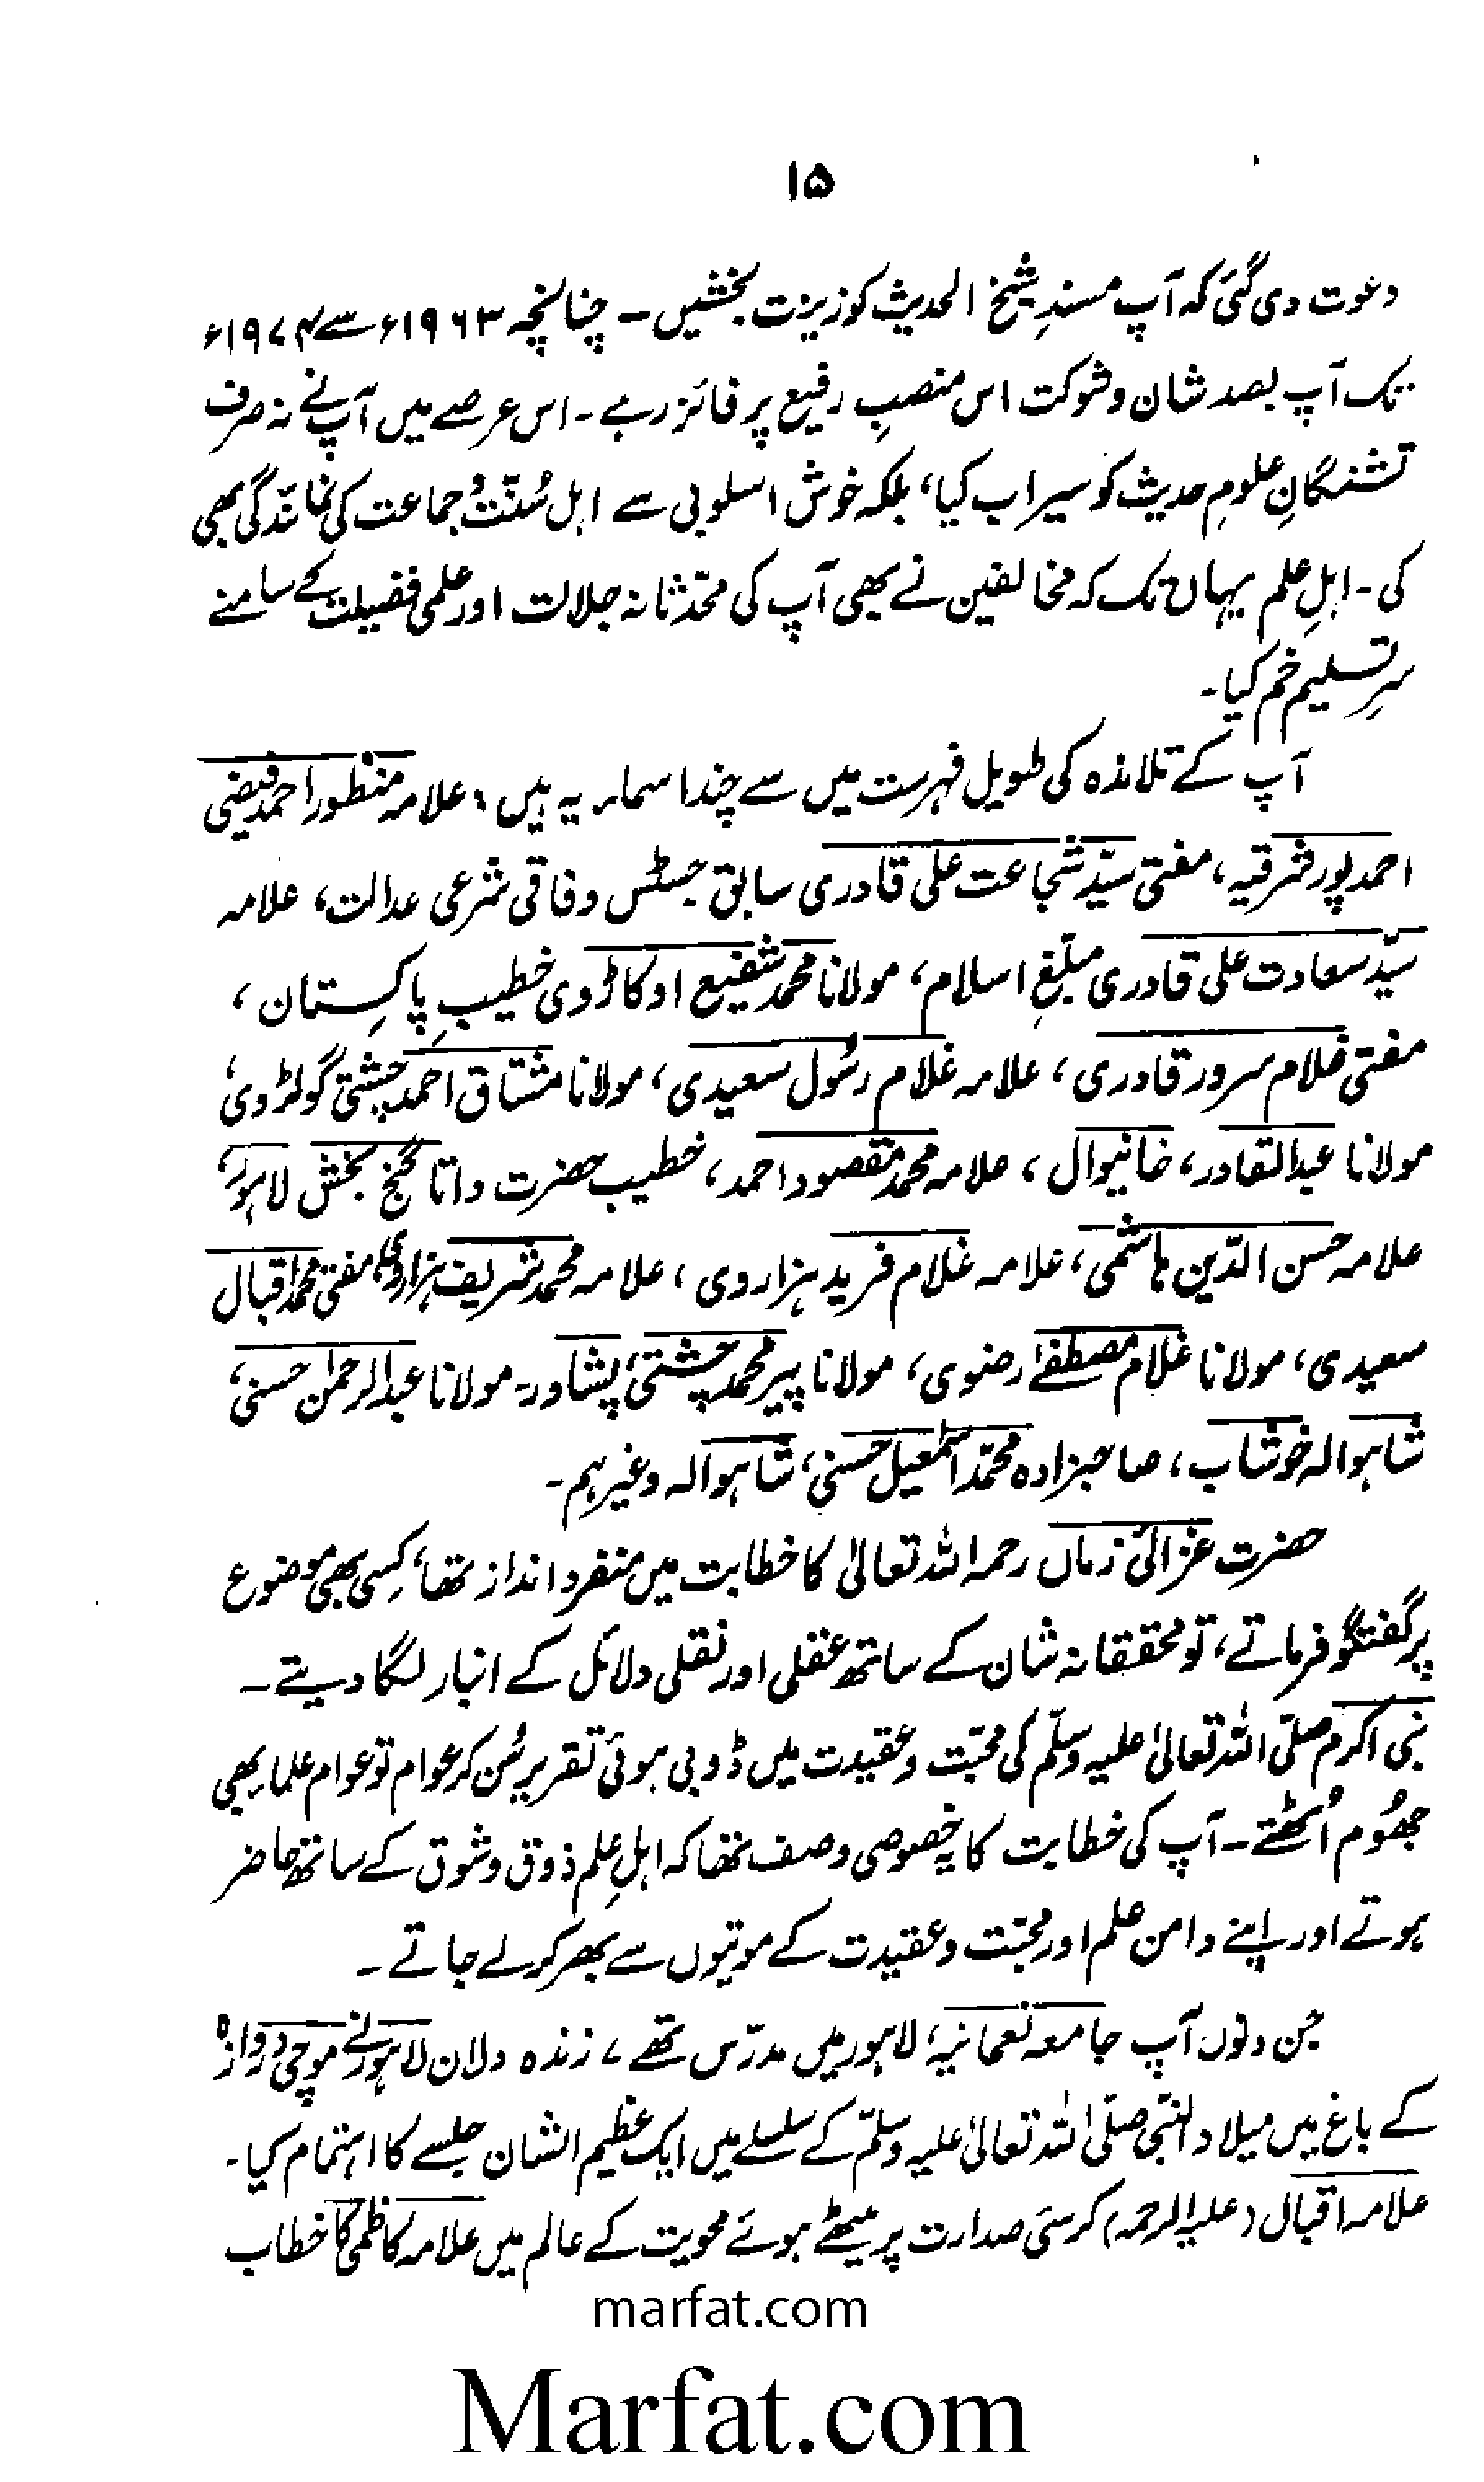 ۱۵
دعوت دی گئی کہ آپ مسندِ شیخ الحدیث کو زینت بخشیں۔ چنانچہ ۱۹۶۳ء سے ۱۹۷۴ء
تک آپ بصد شان و شوکت اس منصبِ رفیع پر فائز رہے۔ اس عرصے میں آپ نے نہ صرف
تشنگانِ علومِ حدیث کو سیراب کیا، بلکہ خوش اسلوبی سے اہل سُنّت و جماعت کی نمائندگی بھی
کی۔ اہلِ علم یہاں تک کہ مخالفین نے بھی آپ کی محدّثانہ جلالت اور علمی فضیلت کے سامنے
سرِ تسلیم خم کیا۔
آپ کے تلامذہ کی طویل فہرست میں سے چند اسماء یہ ہیں: علامہ منظور احمد فیضی
احمد پور شرقیہ، مفتی سیّد شجاعت علی قادری سابق جسٹس وفاقی شرعی عدالت، علامہ
سیّد سعادت علی قادری مبلّغِ اسلام، مولانا محمد شفیع اوکاڑوی خطیبِ پاکستان،
مفتی غلام سرور قادری، علامہ غلام رسُول سعیدی، مولانا مشتاق احمد چشتی گولڑوی،
مولانا عبدالقادر، خانیوال، علامہ محمد مقصود احمد، خطیب حضرت داتا گنج بخش لاہور،
علامہ حسن الدّین ہاشمی، علامہ غلام فرید ہزاروی، علامہ محمد شریف ہزاروی، مفتی محمد اقبال
سعیدی، مولانا غلام مصطفےٰ رضوی، مولانا پیر محمد چشتی، پشاور۔ مولانا عبدالرحمٰن حسنی،
شاہوالہ خوشاب، صاحبزادہ محمّد اسمٰعیل حسنی، شاہوالہ وغیرہم۔
حضرت غزالیٔ زماں رحمہ اللہ تعالیٰ کا خطابت میں منفرد انداز تھا، کِسی بھی موضوع
پر گفتگو فرماتے، تو محققانہ شان کے ساتھ عقلی اور نقلی دلائل کے انبار لگا دیتے۔
نبی اکرم صلّی اللہ تعالیٰ علیہ وسلّم کی محبّت و عقیدت میں ڈوبی ہوئی تقریر سُن کر عوام تو عوام علماء بھی
جھُوم اُٹھتے۔ آپ کی خطابت کا یہ خصوصی وصف تھا کہ اہلِ علم ذوق و شوق کے ساتھ حاضر
ہوتے اور اپنے دامن علم اور محبّت و عقیدت کے موتیوں سے بھر کر لے جاتے۔
جن دنوں آپ جامعہ نعمانیہ، لاہور میں مدرّس تھے، زندہ دلان لاہور نے موچی دروازہ
کے باغ میں میلاد النبی صلّی اللہ تعالیٰ علیہ وسلّم کے سلسلے میں ایک عظیم الشان جلسے کا اہتمام کیا۔
علامہ اقبال (علیہ الرحمہ) کرسیٔ صدارت پر بیٹھے ہوئے محویت کے عالم میں علامہ کاظمی کا خطاب
marfat.com
Marfat.com